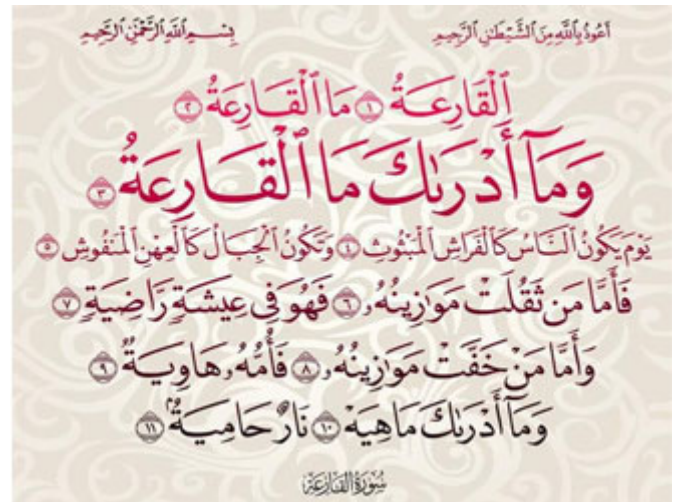 أَعُوذُ بِٱللَّهِ مِنَ ٱلشَّيْطَٰنِ ٱلرَّجِيمِ بِسْمِ ٱللَّهِ ٱلرَّحْمَٰنِ ٱلرَّحِيمِ
ٱلْقَارِعَةُ ١ مَا ٱلْقَارِعَةُ ٢
وَمَآ أَدْرَىٰكَ مَا ٱلْقَارِعَةُ ٣
يَوْمَ يَكُونُ ٱلنَّاسُ كَٱلْفَرَاشِ ٱلْمَبْثُوثِ ٤ وَتَكُونُ ٱلْجِبَالُ كَٱلْعِهْنِ ٱلْمَنفُوشِ ٥
فَأَمَّا مَن ثَقُلَتْ مَوَٰزِينُهُۥ ٦ فَهُوَ فِى عِيشَةٍ رَّاضِيَةٍ ٧
وَأَمَّا مَنْ خَفَّتْ مَوَٰزِينُهُۥ ٨ فَأُمُّهُۥ هَاوِيَةٌ ٩
وَمَآ أَدْرَىٰكَ مَا هِيَهْ ١٠ نَارٌ حَامِيَةٌۢ ١١
سُورَةُ ٱلْقَارِعَةِ